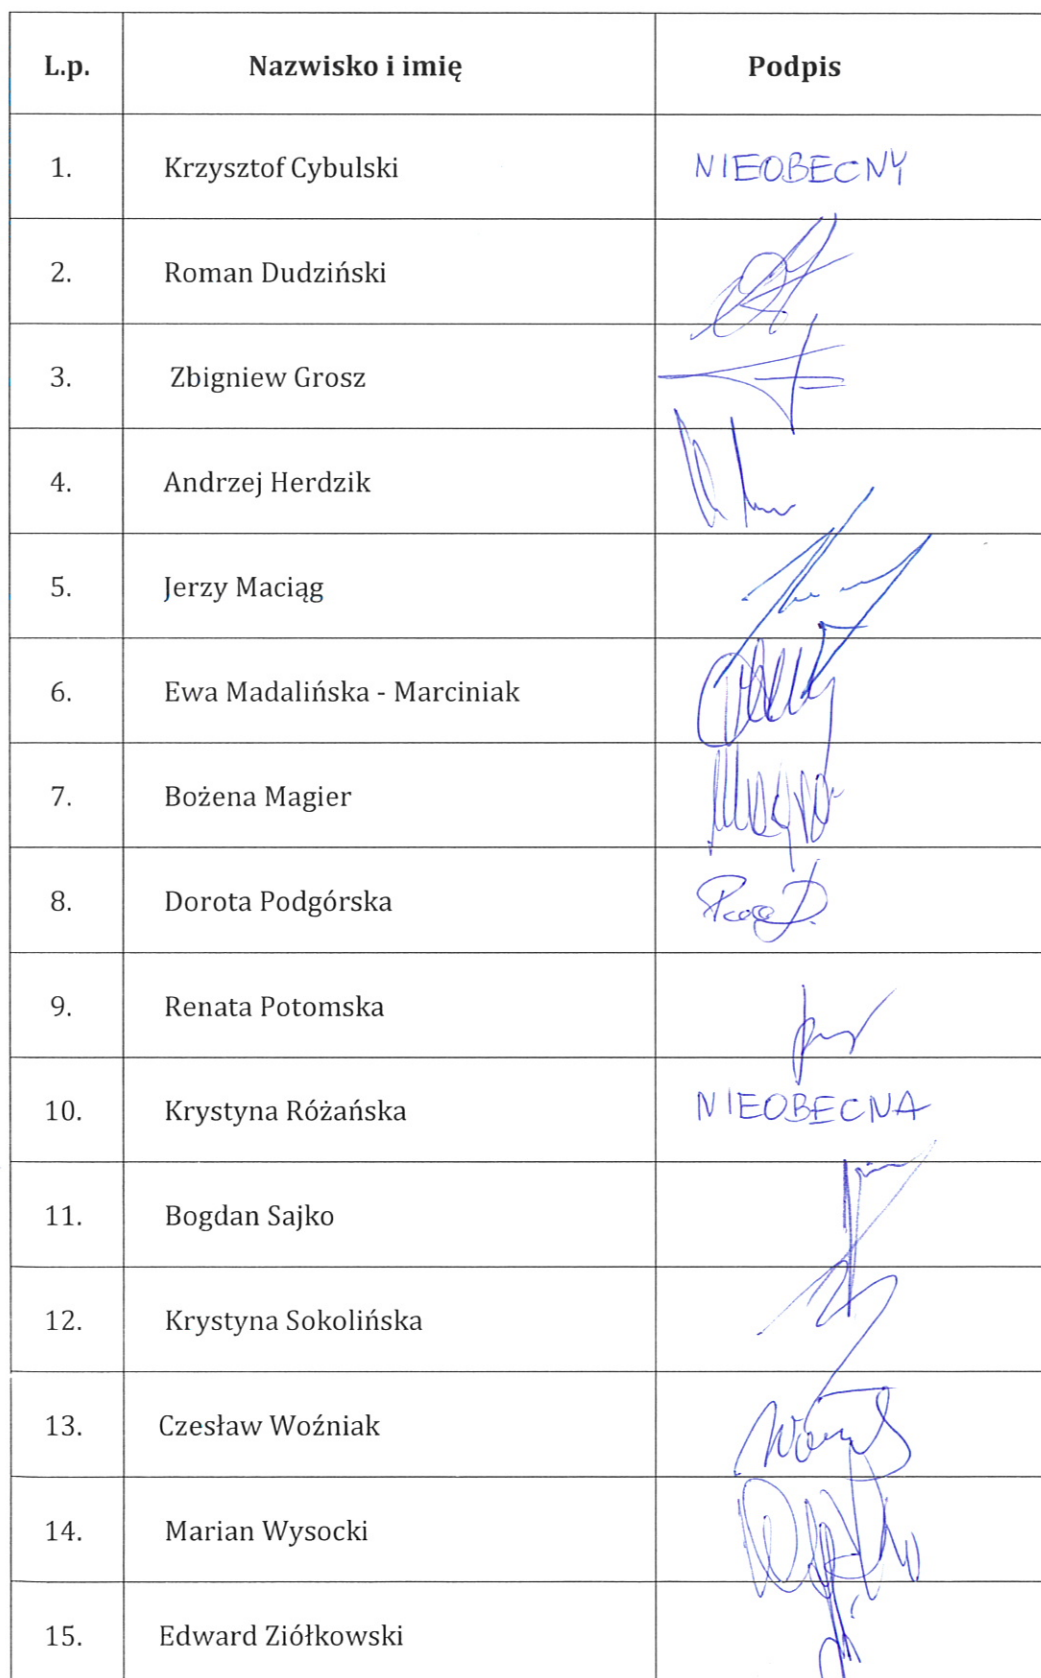 L.p. Nazwisko i imię Podpis
1. Krzysztof Cybulski NIEOBECNY
2. Roman Dudziński
3. Zbigniew Grosz
4. Andrzej Herdzik
5. Jerzy Maciąg
6. Ewa Madalińska - Marciniak
7. Bożena Magier
8. Dorota Podgórska
9. Renata Potomska
10. Krystyna Różańska NIEOBECNA
11. Bogdan Sajko
12. Krystyna Sokolińska
13. Czesław Woźniak
14. Marian Wysocki
15. Edward Ziółkowski